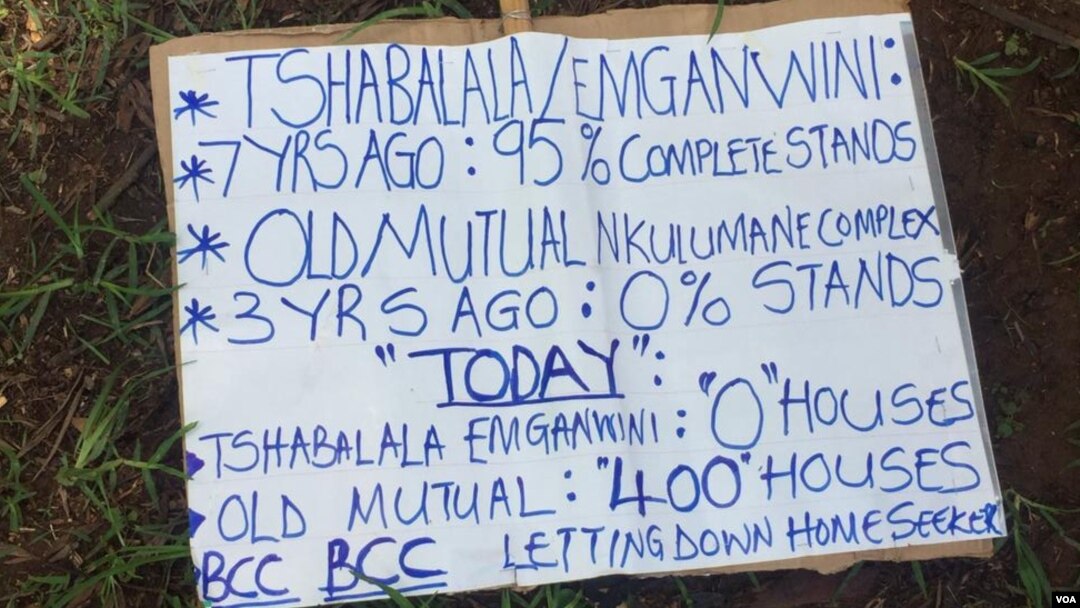 * TSHABALALA/EMGANWINI:
* 7 YRS AGO : 95 % COMPLETE STANDS
* OLD MUTUAL NKULUMANE COMPLEX
* 3 YRS AGO : 0% STANDS
"TODAY":
TSHABALALA EMGANWINI : "0" HOUSES
OLD MUTUAL : "400" HOUSES
BCC BCC LETTING DOWN HOME SEEKER
VOA